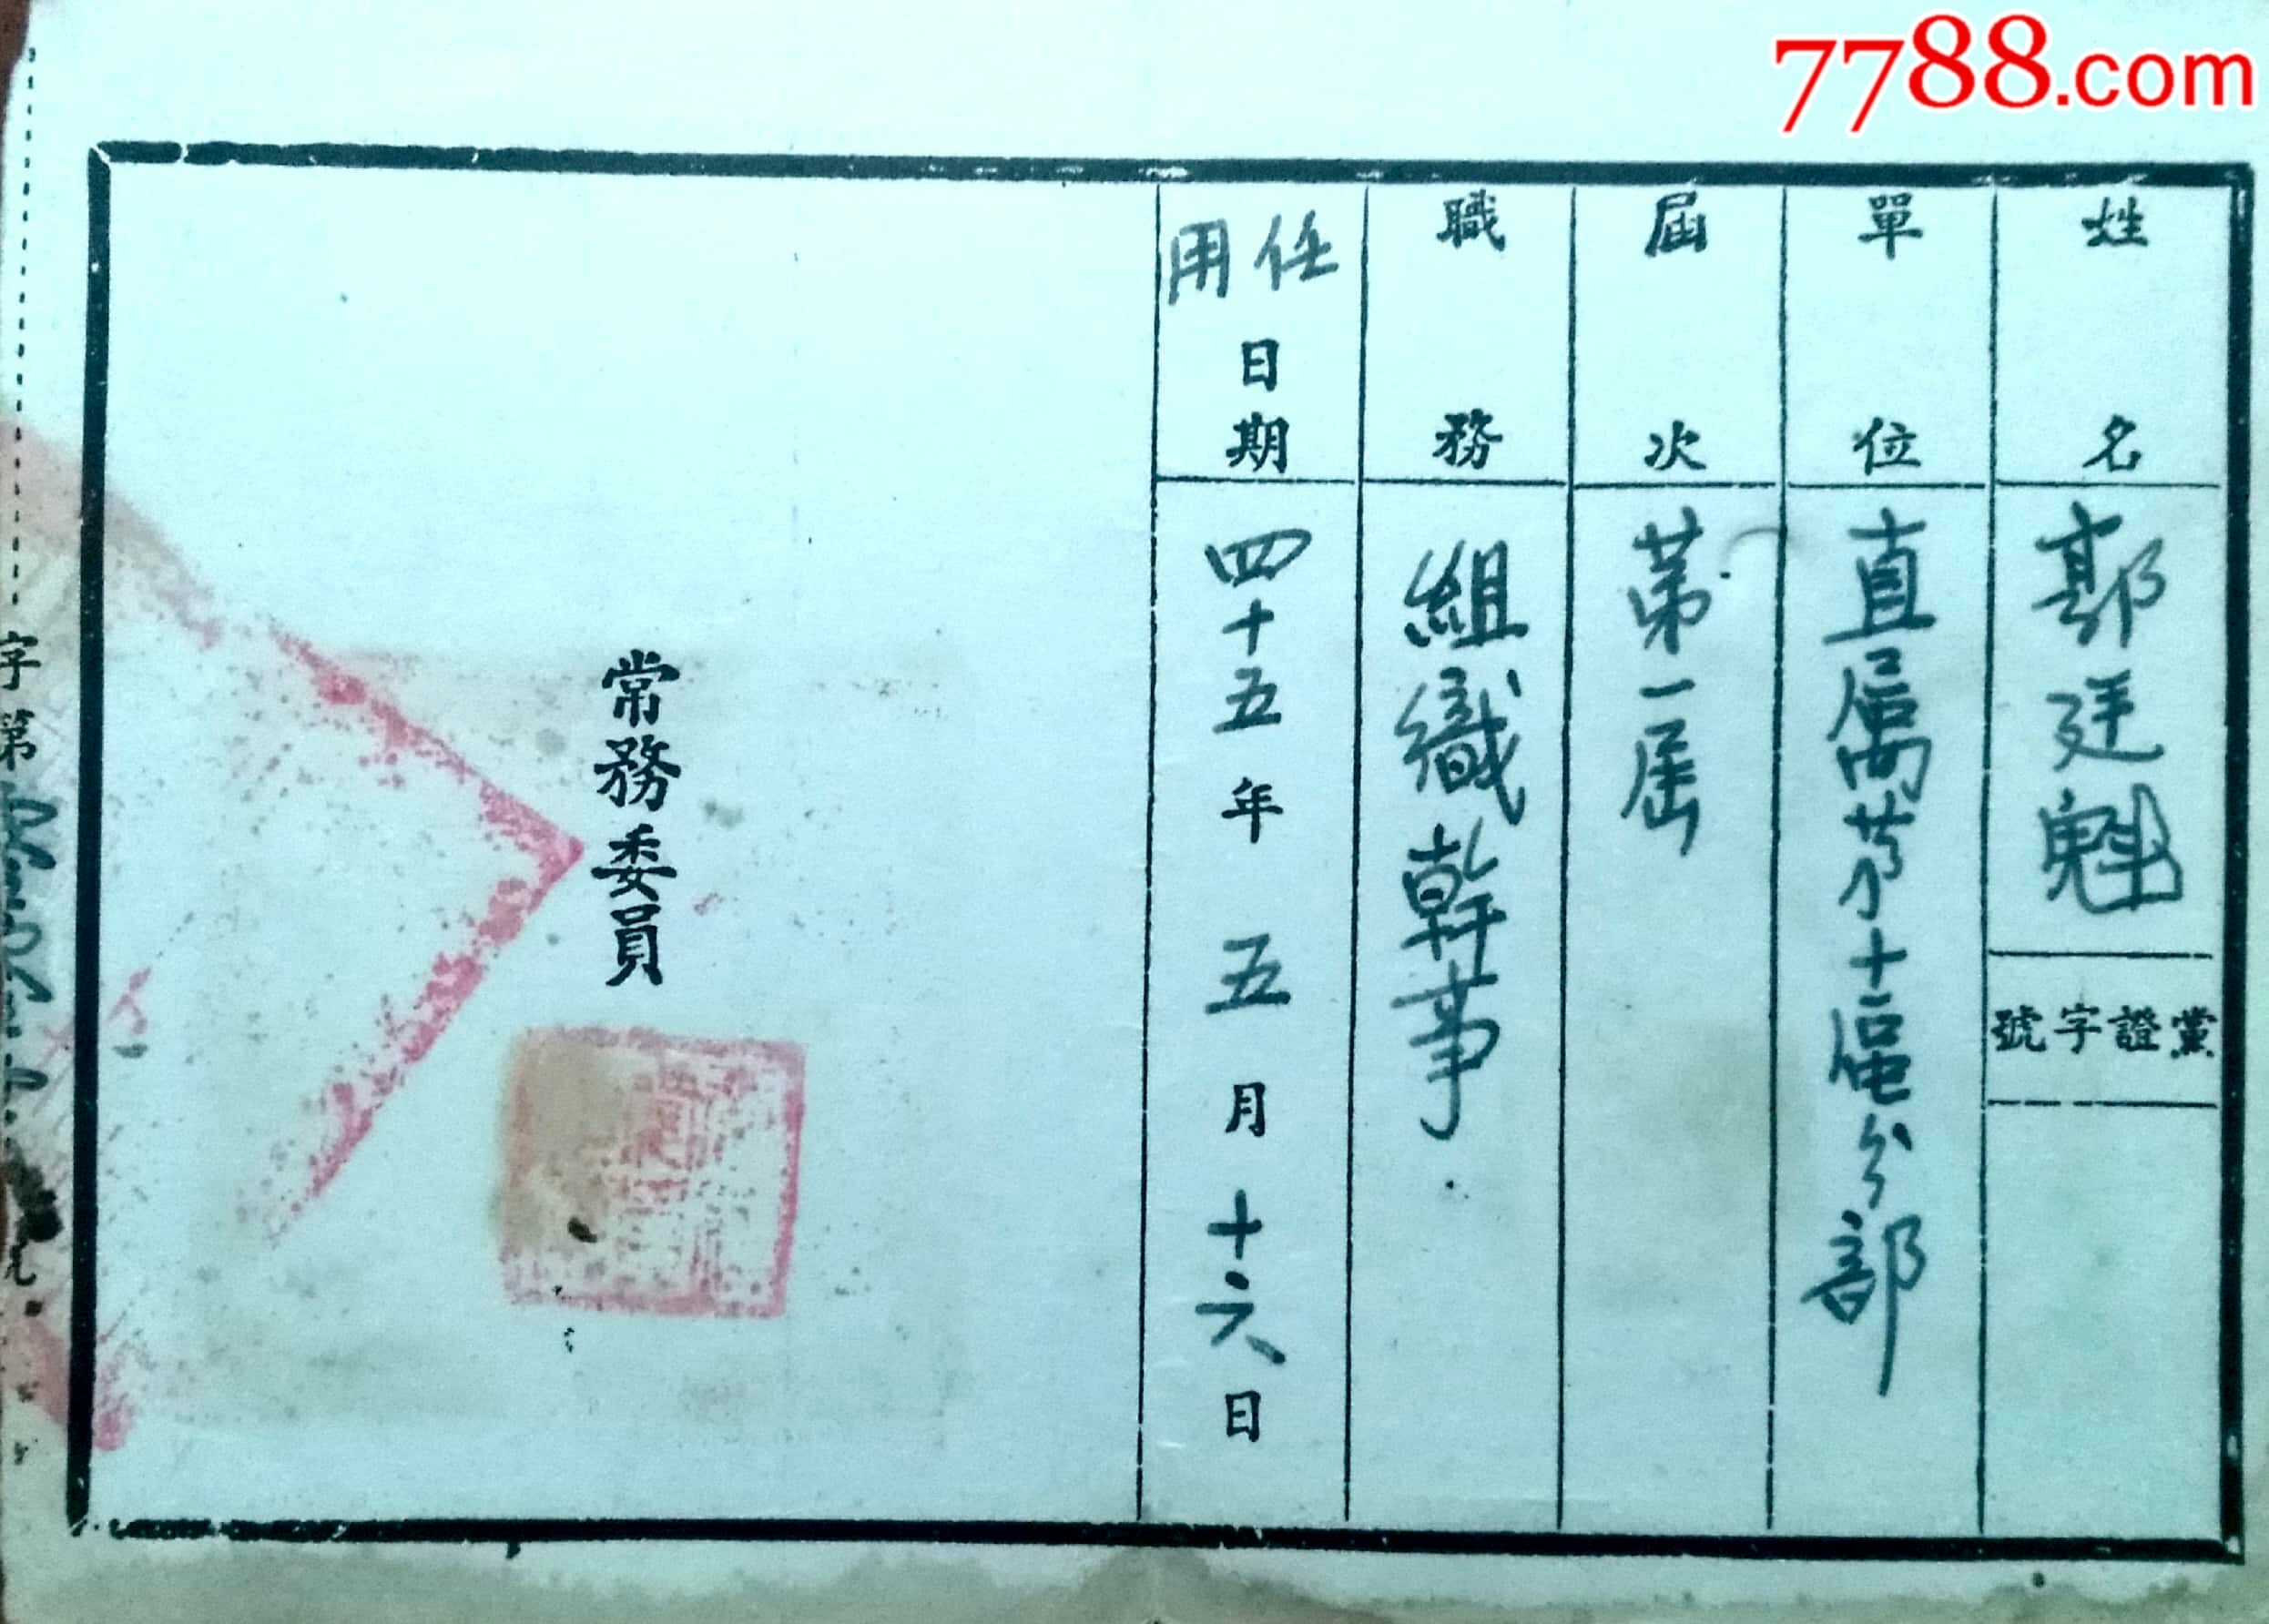 7788.com
姓名
郭廷魁
黨證字號
單位
直屬第十區分部
屆次
第一屆
職務
組織幹事
任用日期
四十五年五月十六日
常務委員
字第